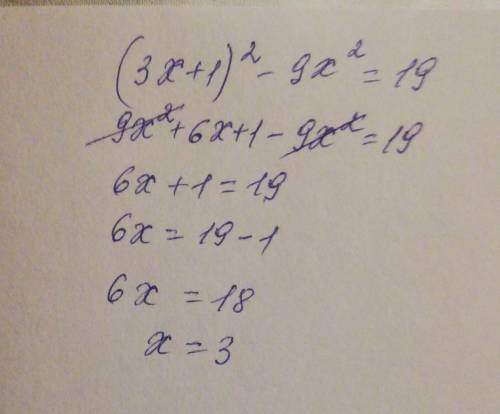 (3x+1)² - 9x² = 19
9x² + 6x + 1 - 9x² = 19
6x + 1 = 19
6x = 19 - 1
6x = 18
x = 3